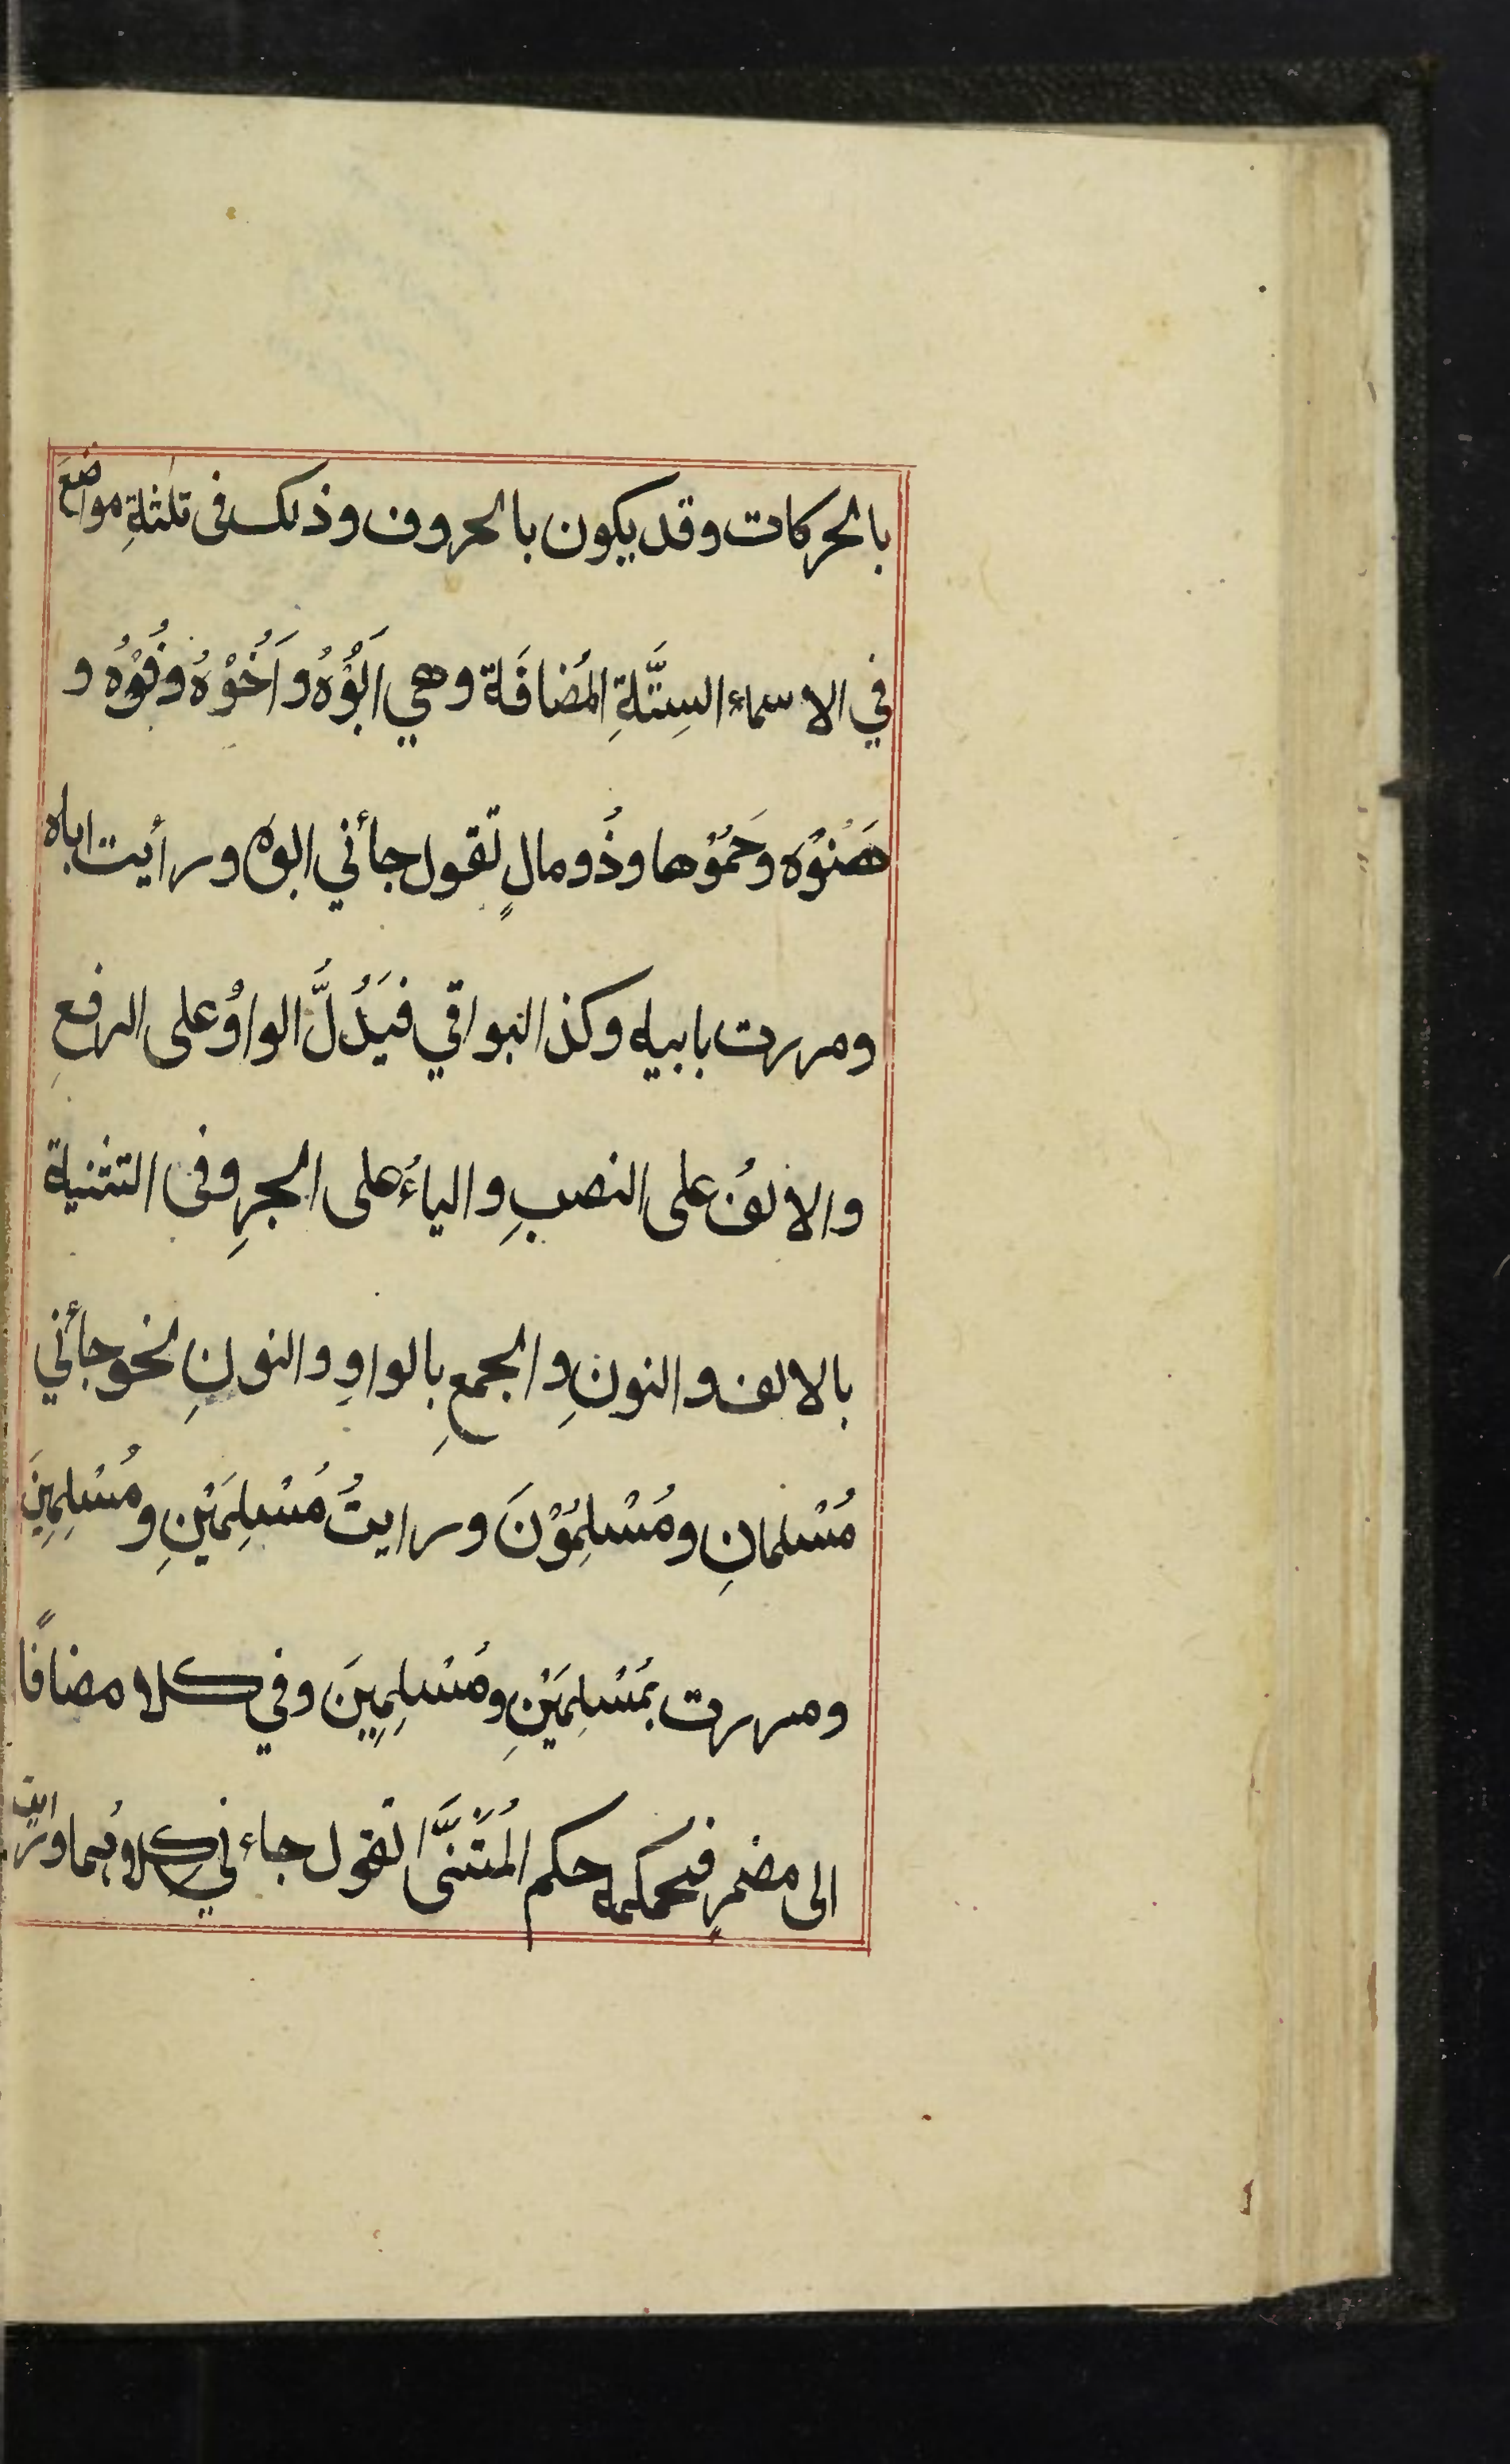 بالحركات وقد يكون بالحروف وذلك فى ثلثةِ مواضعَ
في الاسماء السِتَّةِ المُضافَة وهي اَبُوْهُ واَخُوْهُ وفُوْهُ و
هَنُوْه وحَمُوْها وذُو مالٍ تقول جأني ابوه ورأيت اباه
ومررت بابيه وكذا البواقي فيَدُلَّ الواوُ على الرفعِ
والالفُ على النصبِ والياءُ على الجرِ وفى التثنية
بالالف والنونِ والجمعِ بالواوِ والنونِ نحو جأني
مُسْلمانِ ومُسْلِمُوْنَ ورايتُ مُسْلِمَيْنِ ومُسْلِمِينَ
ومررت بمُسْلِمَيْنِ ومُسْلِمِينَ وفي كلا مضافًا
الى مضمرٍ فحكمه حكم المُثَنَّى تقول جاءني كلاهُما ورايت